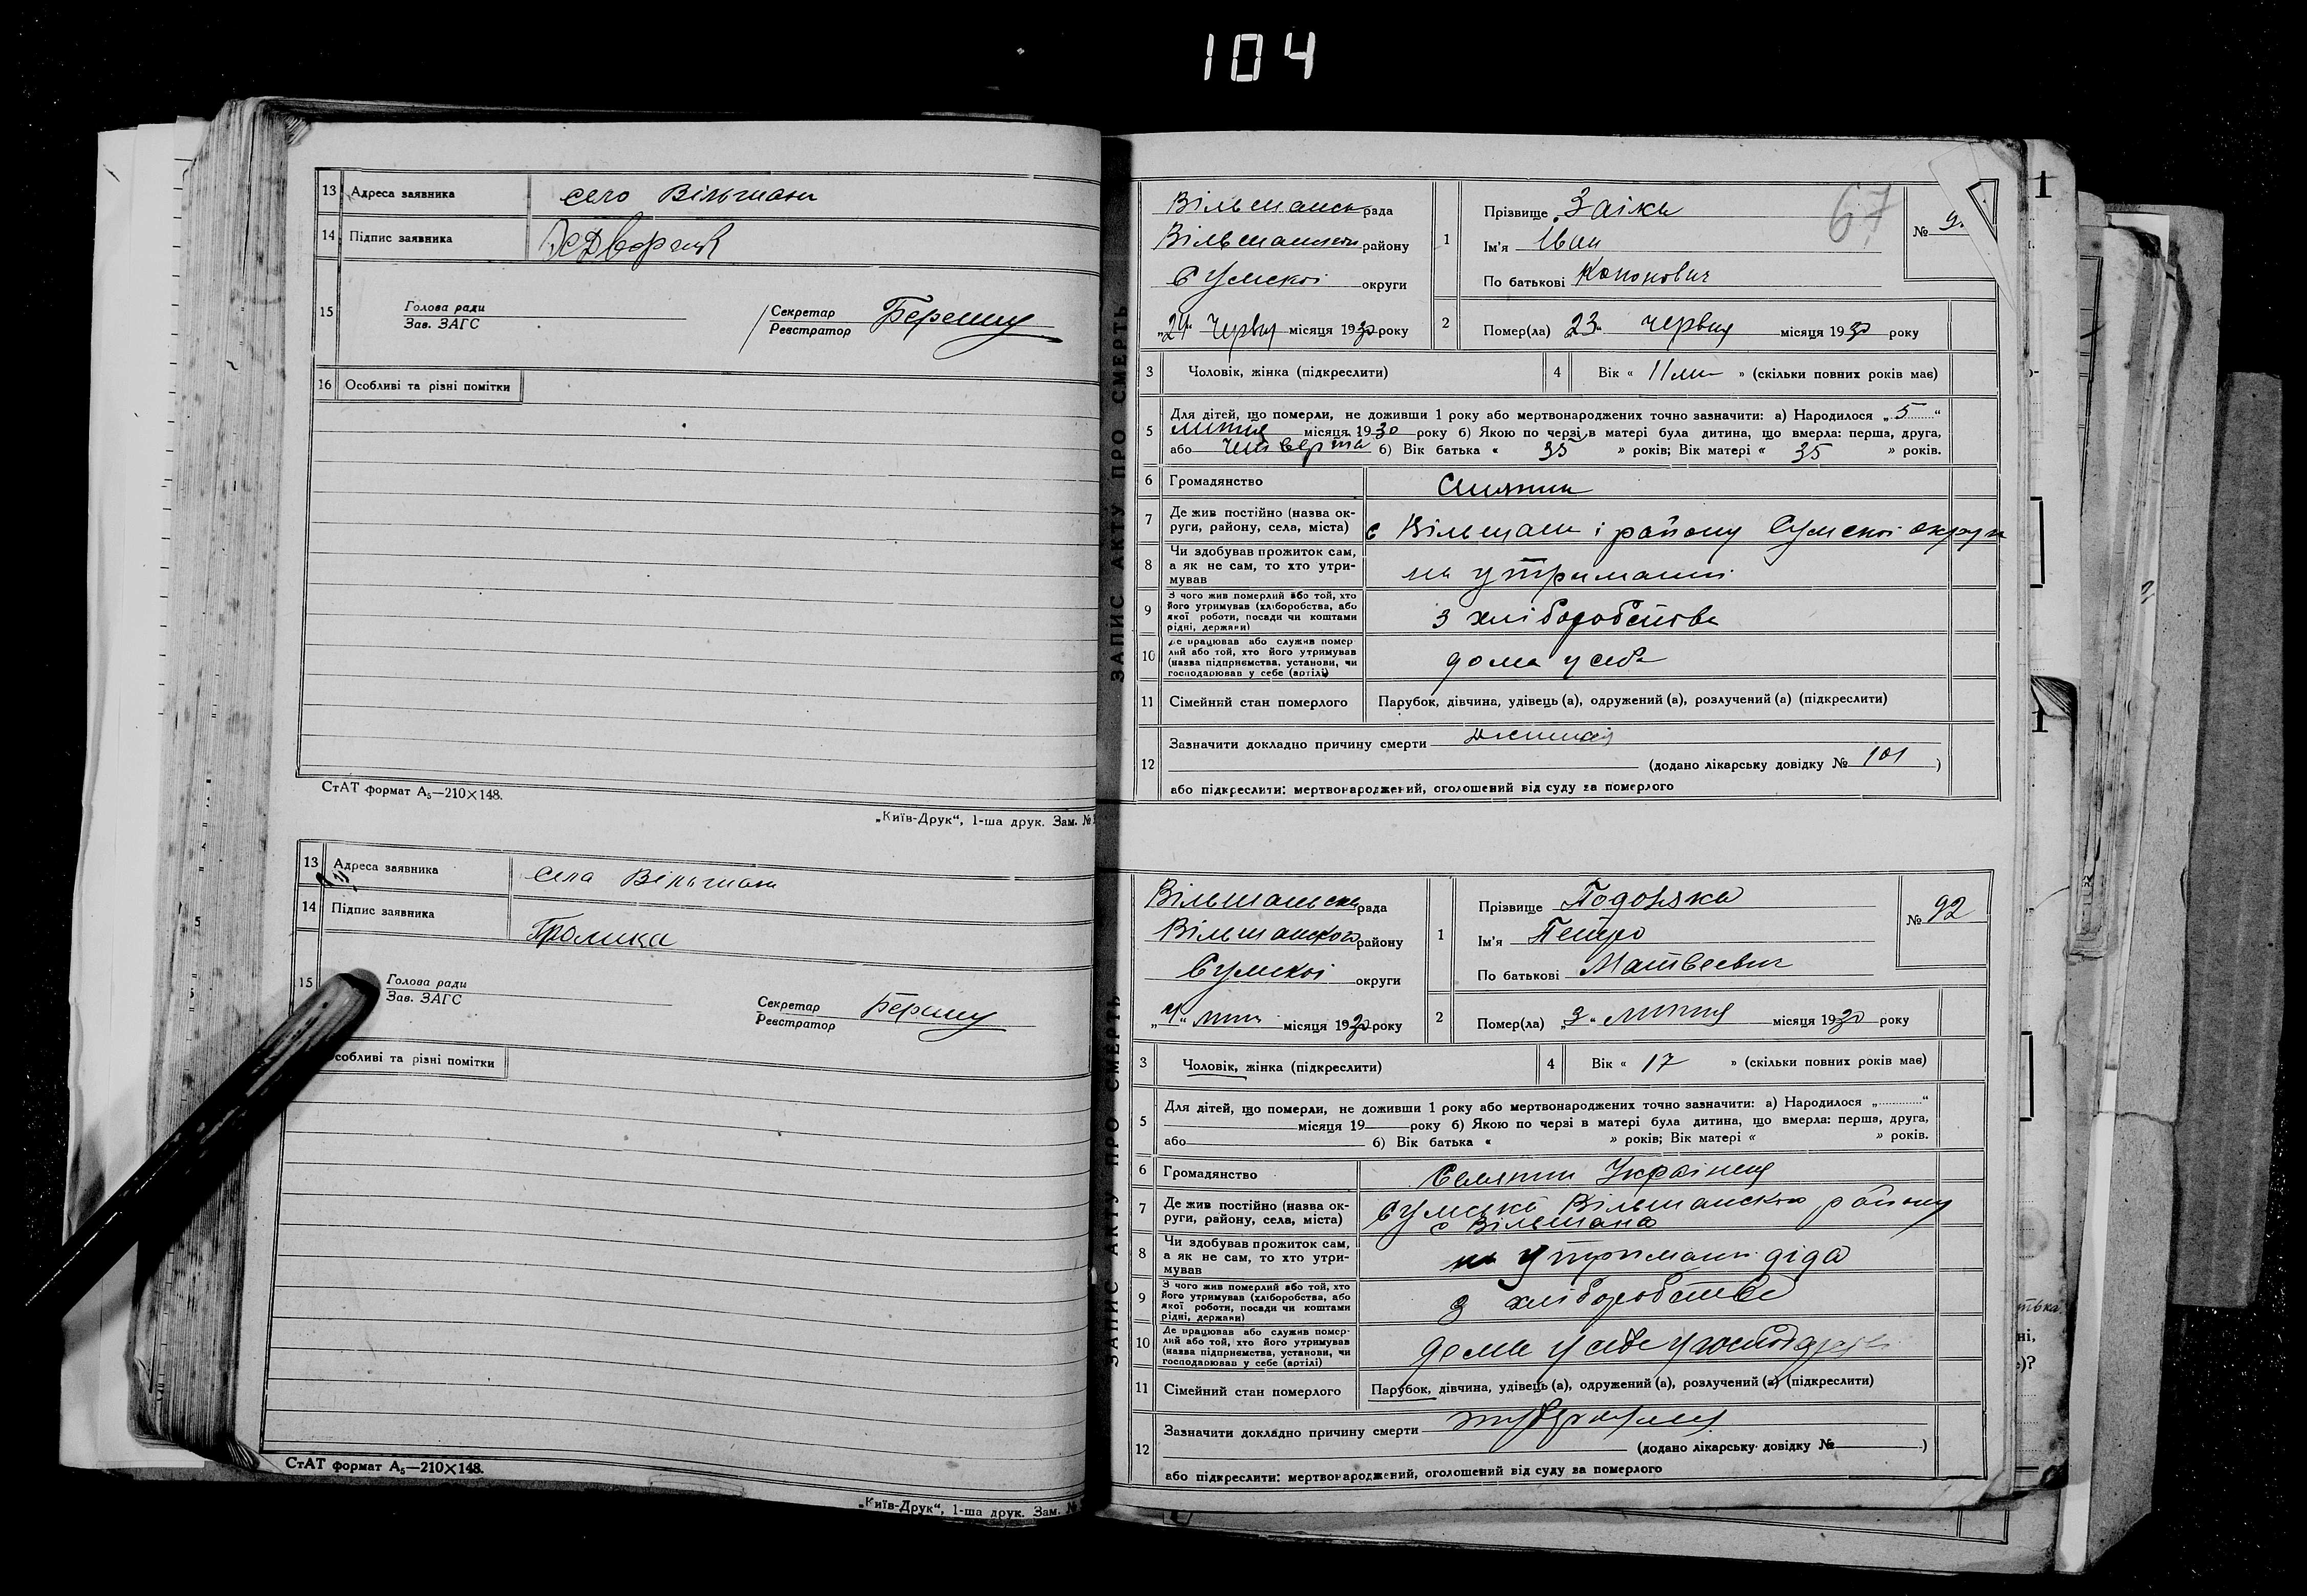 104
13 Адреса заявника село Вільшани
14 Підпис заявника
15 Голова ради
Зав. ЗАГС
Секретар
Реєстратор
16 Особливі та різні помітки
СтАТ формат А₅—210×148.
„Київ-Друк“, 1-ша друк. Зам. №
13 Адреса заявника села Вільшани
14 Підпис заявника
15 Голова ради
Зав. ЗАГС
Секретар
Реєстратор
собливі та різні помітки
СтАТ формат А₅—210×148.
„Київ-Друк“, 1-ша друк. Зам. №
ЗАПИС АКТУ ПРО СМЕРТЬ
67
Вільшанськ рада
Вільшанського району
Сумскої округи
„24“ Червня місяця 1930 року
1 Прізвище Заіка
Ім'я Іван
По батькові Кононович
№ 9
2 Помер(ла) 23 червня місяця 1930 року
3 Чоловік, жінка (підкреслити)
4 Вік « 11 » (скільки повних років має)
5 Для дітей, що померли, не доживши 1 року або мертвонароджених точно зазначити: а) Народилося „5“
липня місяця 1930 року б) Якою по черзі в матері була дитина, що вмерла: перша, друга,
або четверта б) Вік батька « 35 » років; Вік матері « 35 » років.
6 Громадянство
7 Де жив постійно (назва округи, району, села, міста) с Вільшани і району Сумскої округи
8 Чи здобував прожиток сам,
а як не сам, то хто утримував
на утриманні
9 З чого жив померлий або той, хто
його утримував (хліборобства, або
якої роботи, посади чи коштами
рідні, держави)
з хліборобства
10 Де працював або служив померлий або той, хто його утримував
(назва підприємства, установи, чи
господарював у себе (артілі)
дома у себе
11 Сімейний стан померлого Парубок, дівчина, удівець (а), одружений (а), розлучений (а) (підкреслити)
12 Зазначити докладно причину смерти
(додано лікарську довідку № 101 )
або підкреслити: мертвонароджений, оголошений від суду за померлого
ЗАПИС АКТУ ПРО СМЕРТЬ
Вільшанська рада
Вільшанского району
Сумскої округи
„4“ лип місяця 1930 року
1 Прізвище
Ім'я Петро
По батькові Матвеевич
№ 92
2 Помер(ла) „3“ липня місяця 1930 року
3 Чоловік, жінка (підкреслити)
4 Вік « 17 » (скільки повних років має)
5 Для дітей, що померли, не доживши 1 року або мертвонароджених точно зазначити: а) Народилося „ “
місяця 19 року б) Якою по черзі в матері була дитина, що вмерла: перша, друга,
або б) Вік батька « » років; Вік матері « » років.
6 Громадянство Українец
7 Де жив постійно (назва округи, району, села, міста) Сумська Вільшанского району
с Вільшана
8 Чи здобував прожиток сам,
а як не сам, то хто утримував
на утриманні діда
9 З чого жив померлий або той, хто
його утримував (хліборобства, або
якої роботи, посади чи коштами
рідні, держави)
з хліборобства
10 Де працював або служив померлий або той, хто його утримував
(назва підприємства, установи, чи
господарював у себе (артілі)
дома у себе
11 Сімейний стан померлого Парубок, дівчина, удівець (а), одружений (а), розлучений (а) (підкреслити)
12 Зазначити докладно причину смерти
(додано лікарську довідку № )
або підкреслити: мертвонароджений, оголошений від суду за померлого